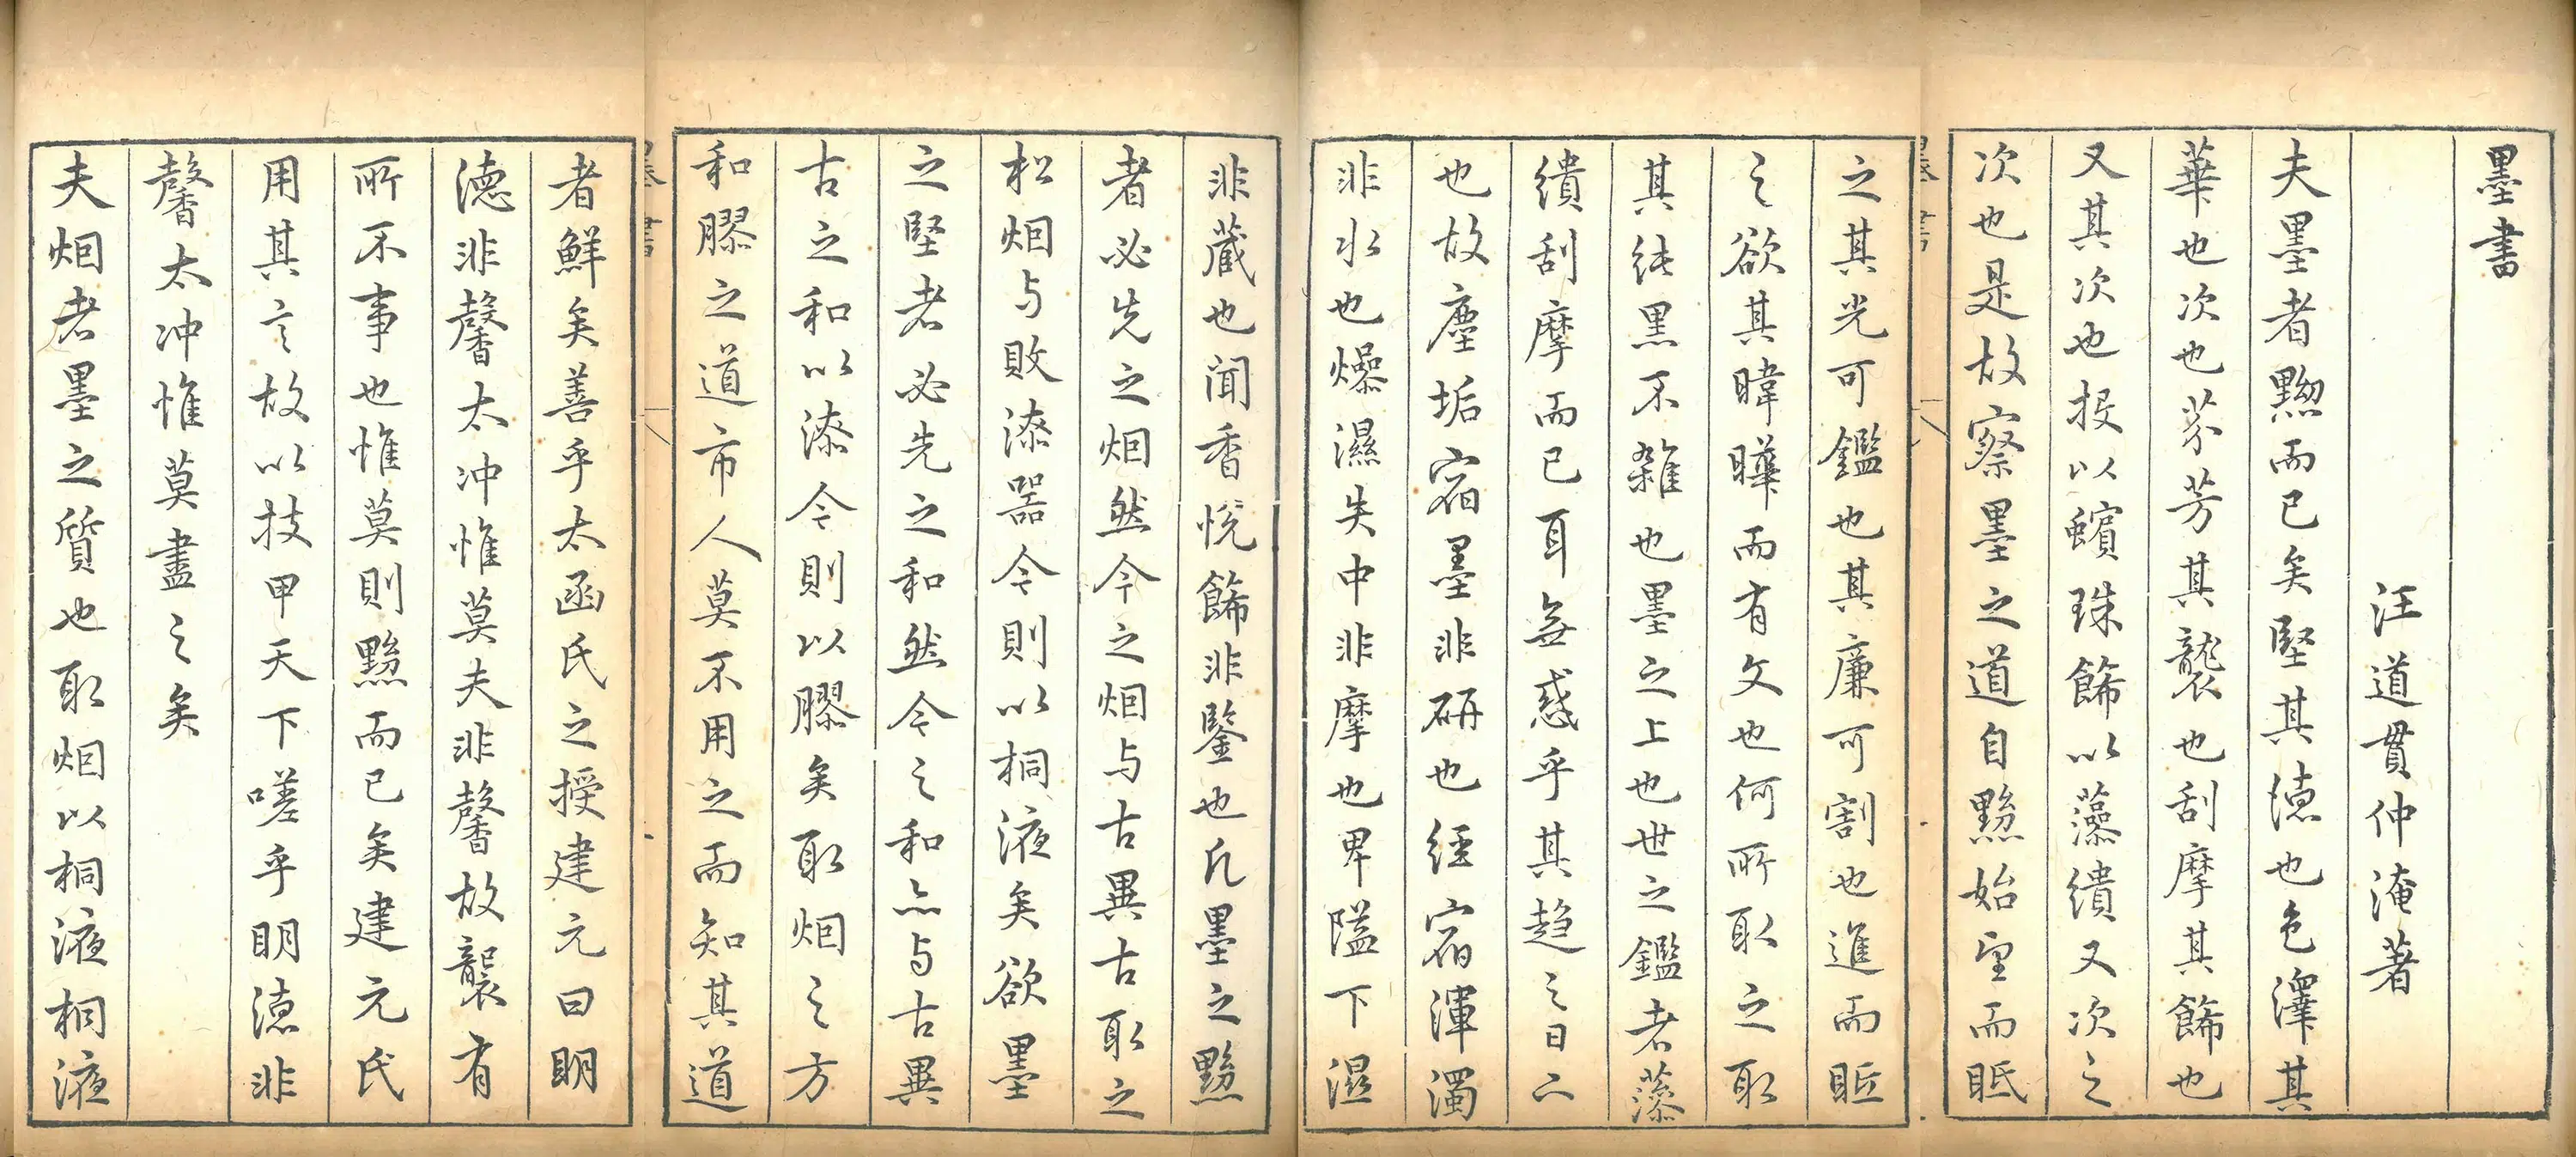 墨書
汪道貫仲淹著
夫墨者黟而已矣堅其德也色澤其
華也次也芬芳其襲也刮摩其飾也
又其次也投以蠙珠飾以藻繢又次之
次也是故察墨之道自黟始望而眂
之其光可鑑也其廉可割也進而眂
之欲其暐曄而有文也何所取之取
其純黑不雜也墨之上也世之鑑者藻
繢刮摩而已耳無惑乎其趋之日二
也故塵垢宿墨非研也經宿渾濁
非水也燥濕失中非摩也卑隘下濕
非藏也聞香悅飾非鑒也凡墨之黟
者必先之烟然今之烟与古異古取之
松烟与敗漆器今則以桐液矣欲墨
之堅者必先之和然今之和亦与古異
古之和以漆今則以膠矣取烟之方
和膠之道市人莫不用之而知其道
者鮮矣善乎太函氏之授建元曰明
德非馨太冲惟莫夫非馨故襲有
所不事也惟莫則黟而已矣建元氏
用其言故以技甲天下嗟乎明德非
馨太冲惟莫盡之矣
夫烟者墨之質也取烟以桐液桐液